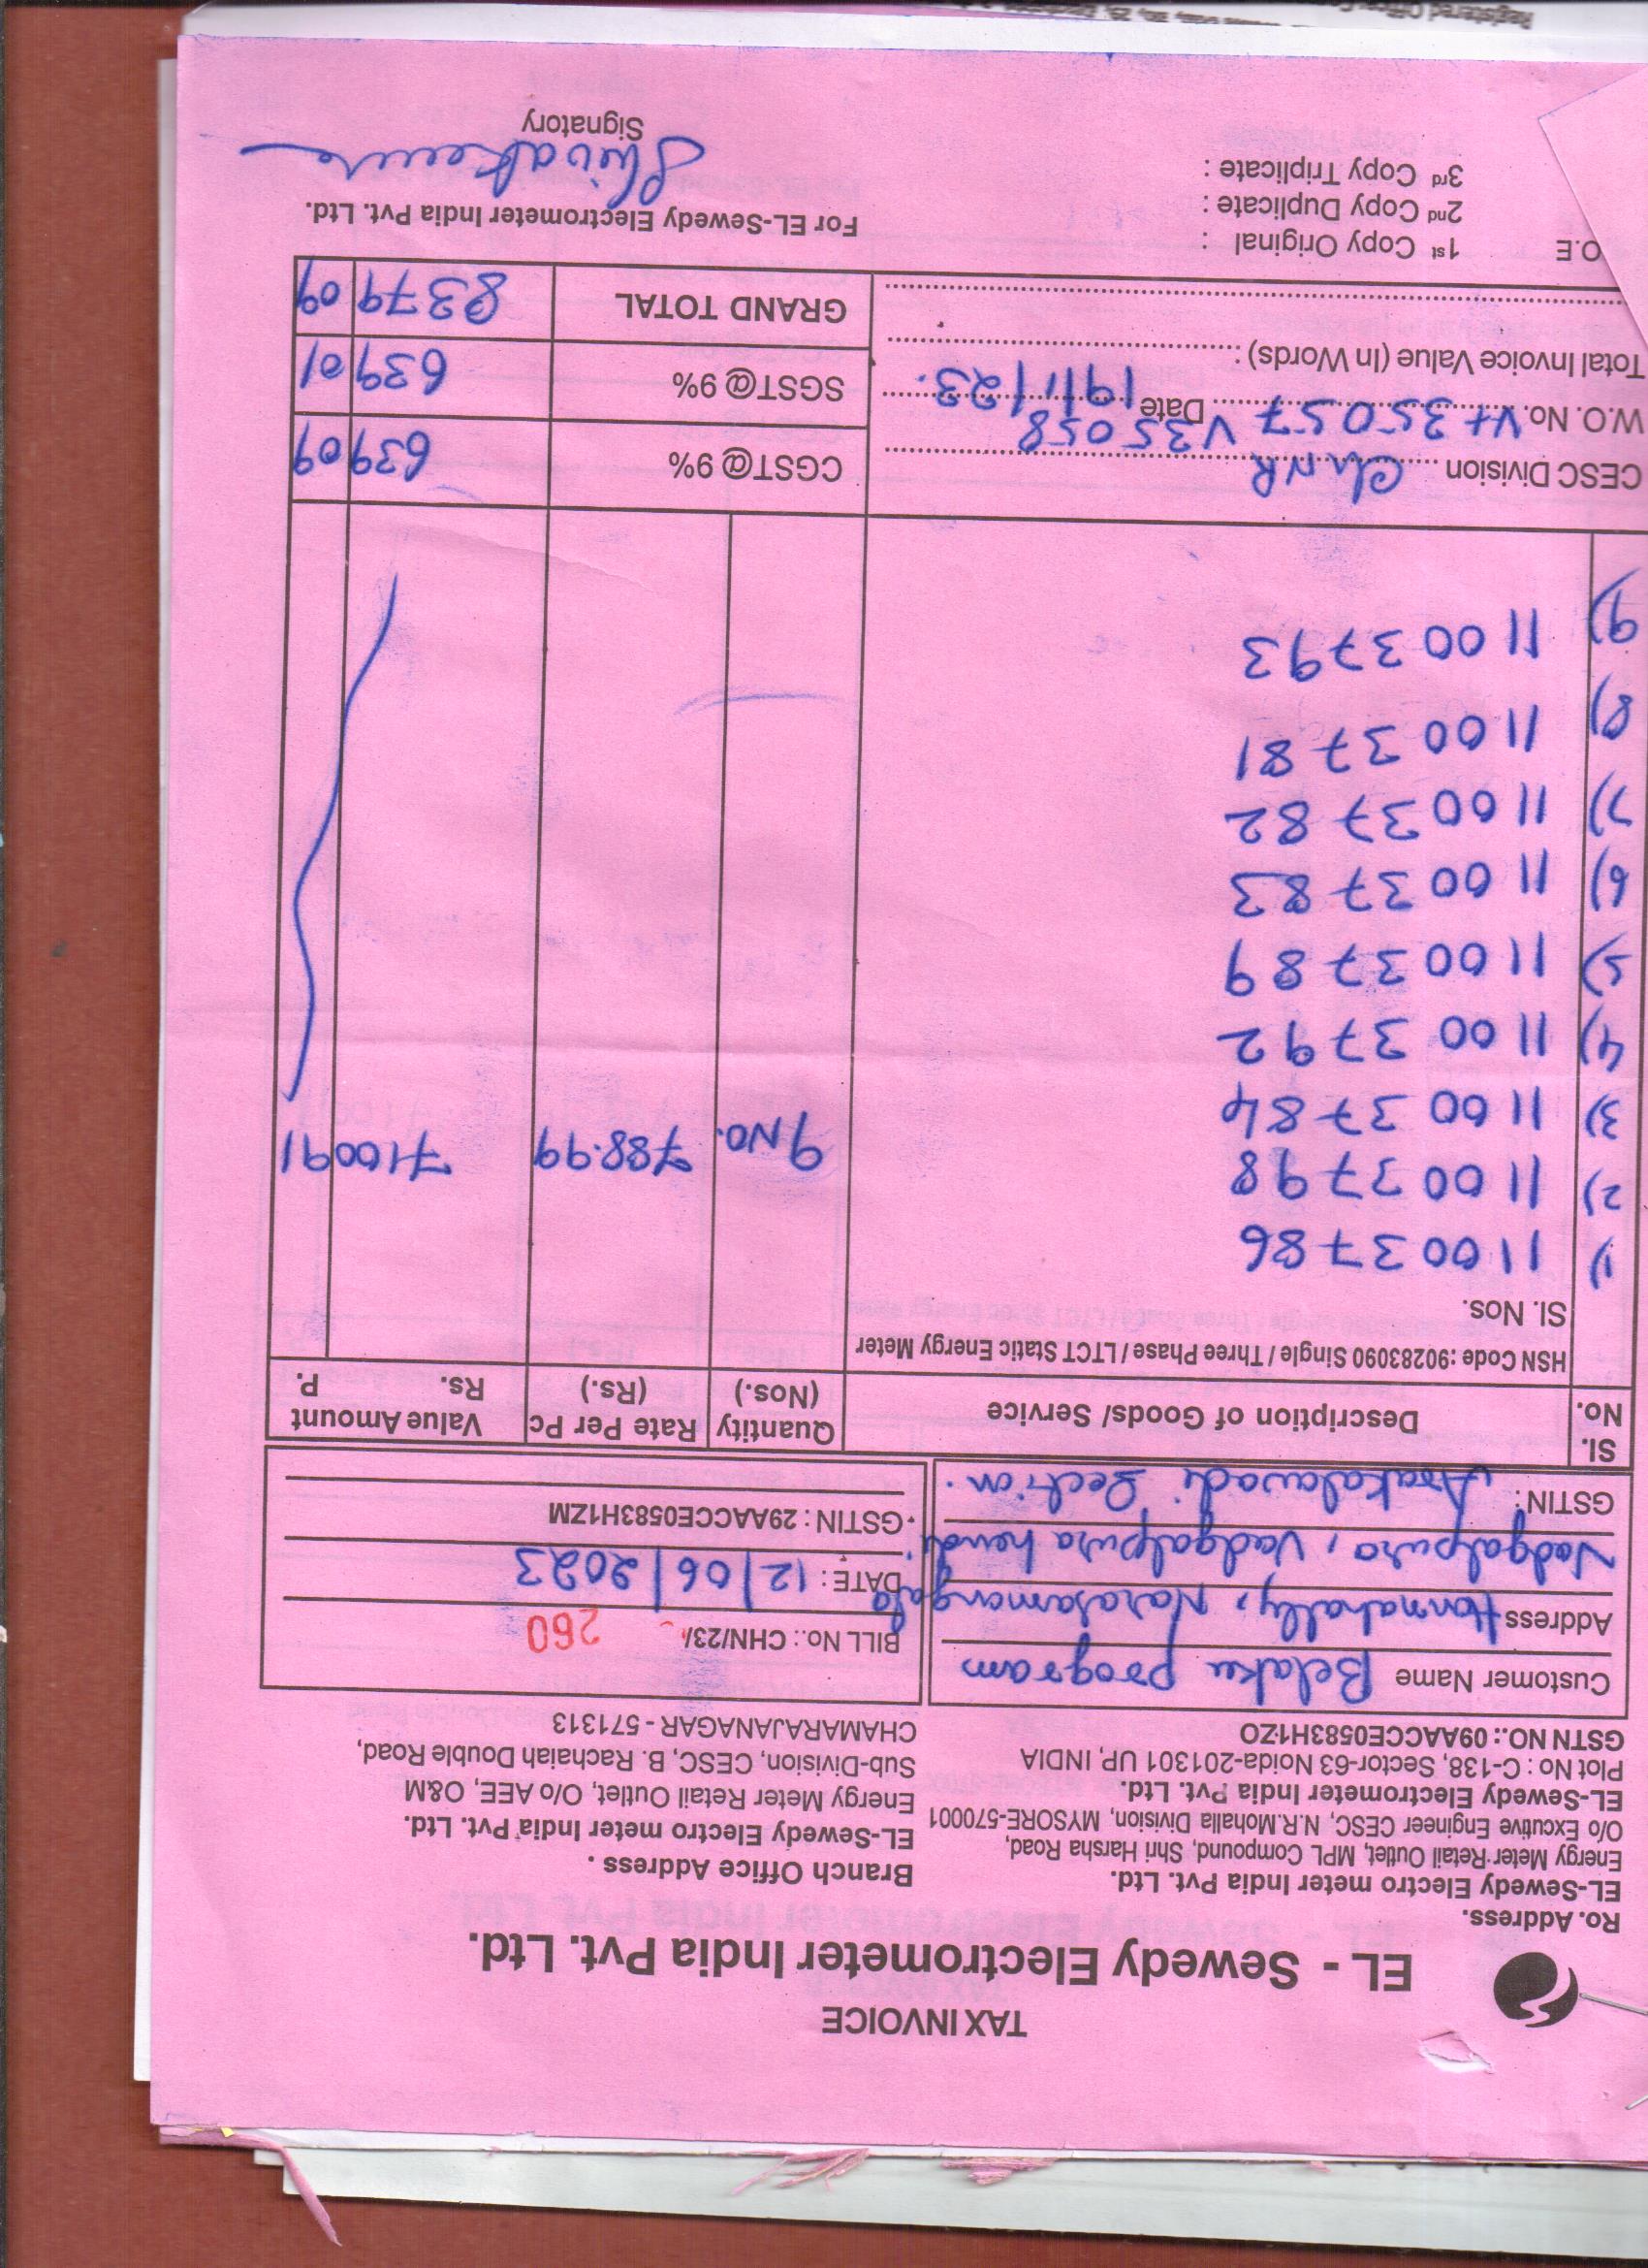 TAX INVOICE
EL - Sewedy Electrometer India Pvt. Ltd.
Ro. Address.
EL-Sewedy Electro meter India Pvt. Ltd.
Energy Meter Retail Outlet, MPL Compound, Shri Harsha Road,
O/o Excutive Engineer CESC, N.R.Mohalla Division, MYSORE-570001
EL-Sewedy Electrometer India Pvt. Ltd.
Plot No : C-138, Sector-63 Noida-201301 UP, INDIA
GSTN NO.: 09AACCE0583H1ZO
Branch Office Address .
EL-Sewedy Electro meter India Pvt. Ltd.
Energy Meter Retail Outlet, O/o AEE, O&M
Sub-Division, CESC, B. Rachaiah Double Road,
CHAMARAJANAGAR - 571313
Customer Name Belaku program
Address Honnahally, Narasamangala
Vadgalpura, Vadgalpura hundi
GSTIN: Arakalawadi Section.
BILL No.: CHN/23/ 260
DATE : 12/06/2023
GSTIN : 29AACCE0583H1ZM
Sl. No. Description of Goods/ Service Quantity (Nos.) Rate Per Pc (Rs.) Value Amount Rs. P.
HSN Code :90283090 Single / Three Phase / LTCT Static Energy Meter
Sl. Nos.
1) 11003786
2) 11003798 9 No. 788.99 7100 91
3) 11003784
4) 11003792
5) 11003789
6) 11003783
7) 11003782
8) 11003781
9) 11003793
CESC Division ChNR CGST@ 9% 639 09
W.O. No. V+35057 V35058 Date 19/1/23. SGST@ 9% 639 01
Total Invoice Value (In Words) :
GRAND TOTAL 8379 09
O.E 1st Copy Original :
2nd Copy Duplicate :
3rd Copy Triplicate :
For EL-Sewedy Electrometer India Pvt. Ltd.
Shivakumar
Signatory